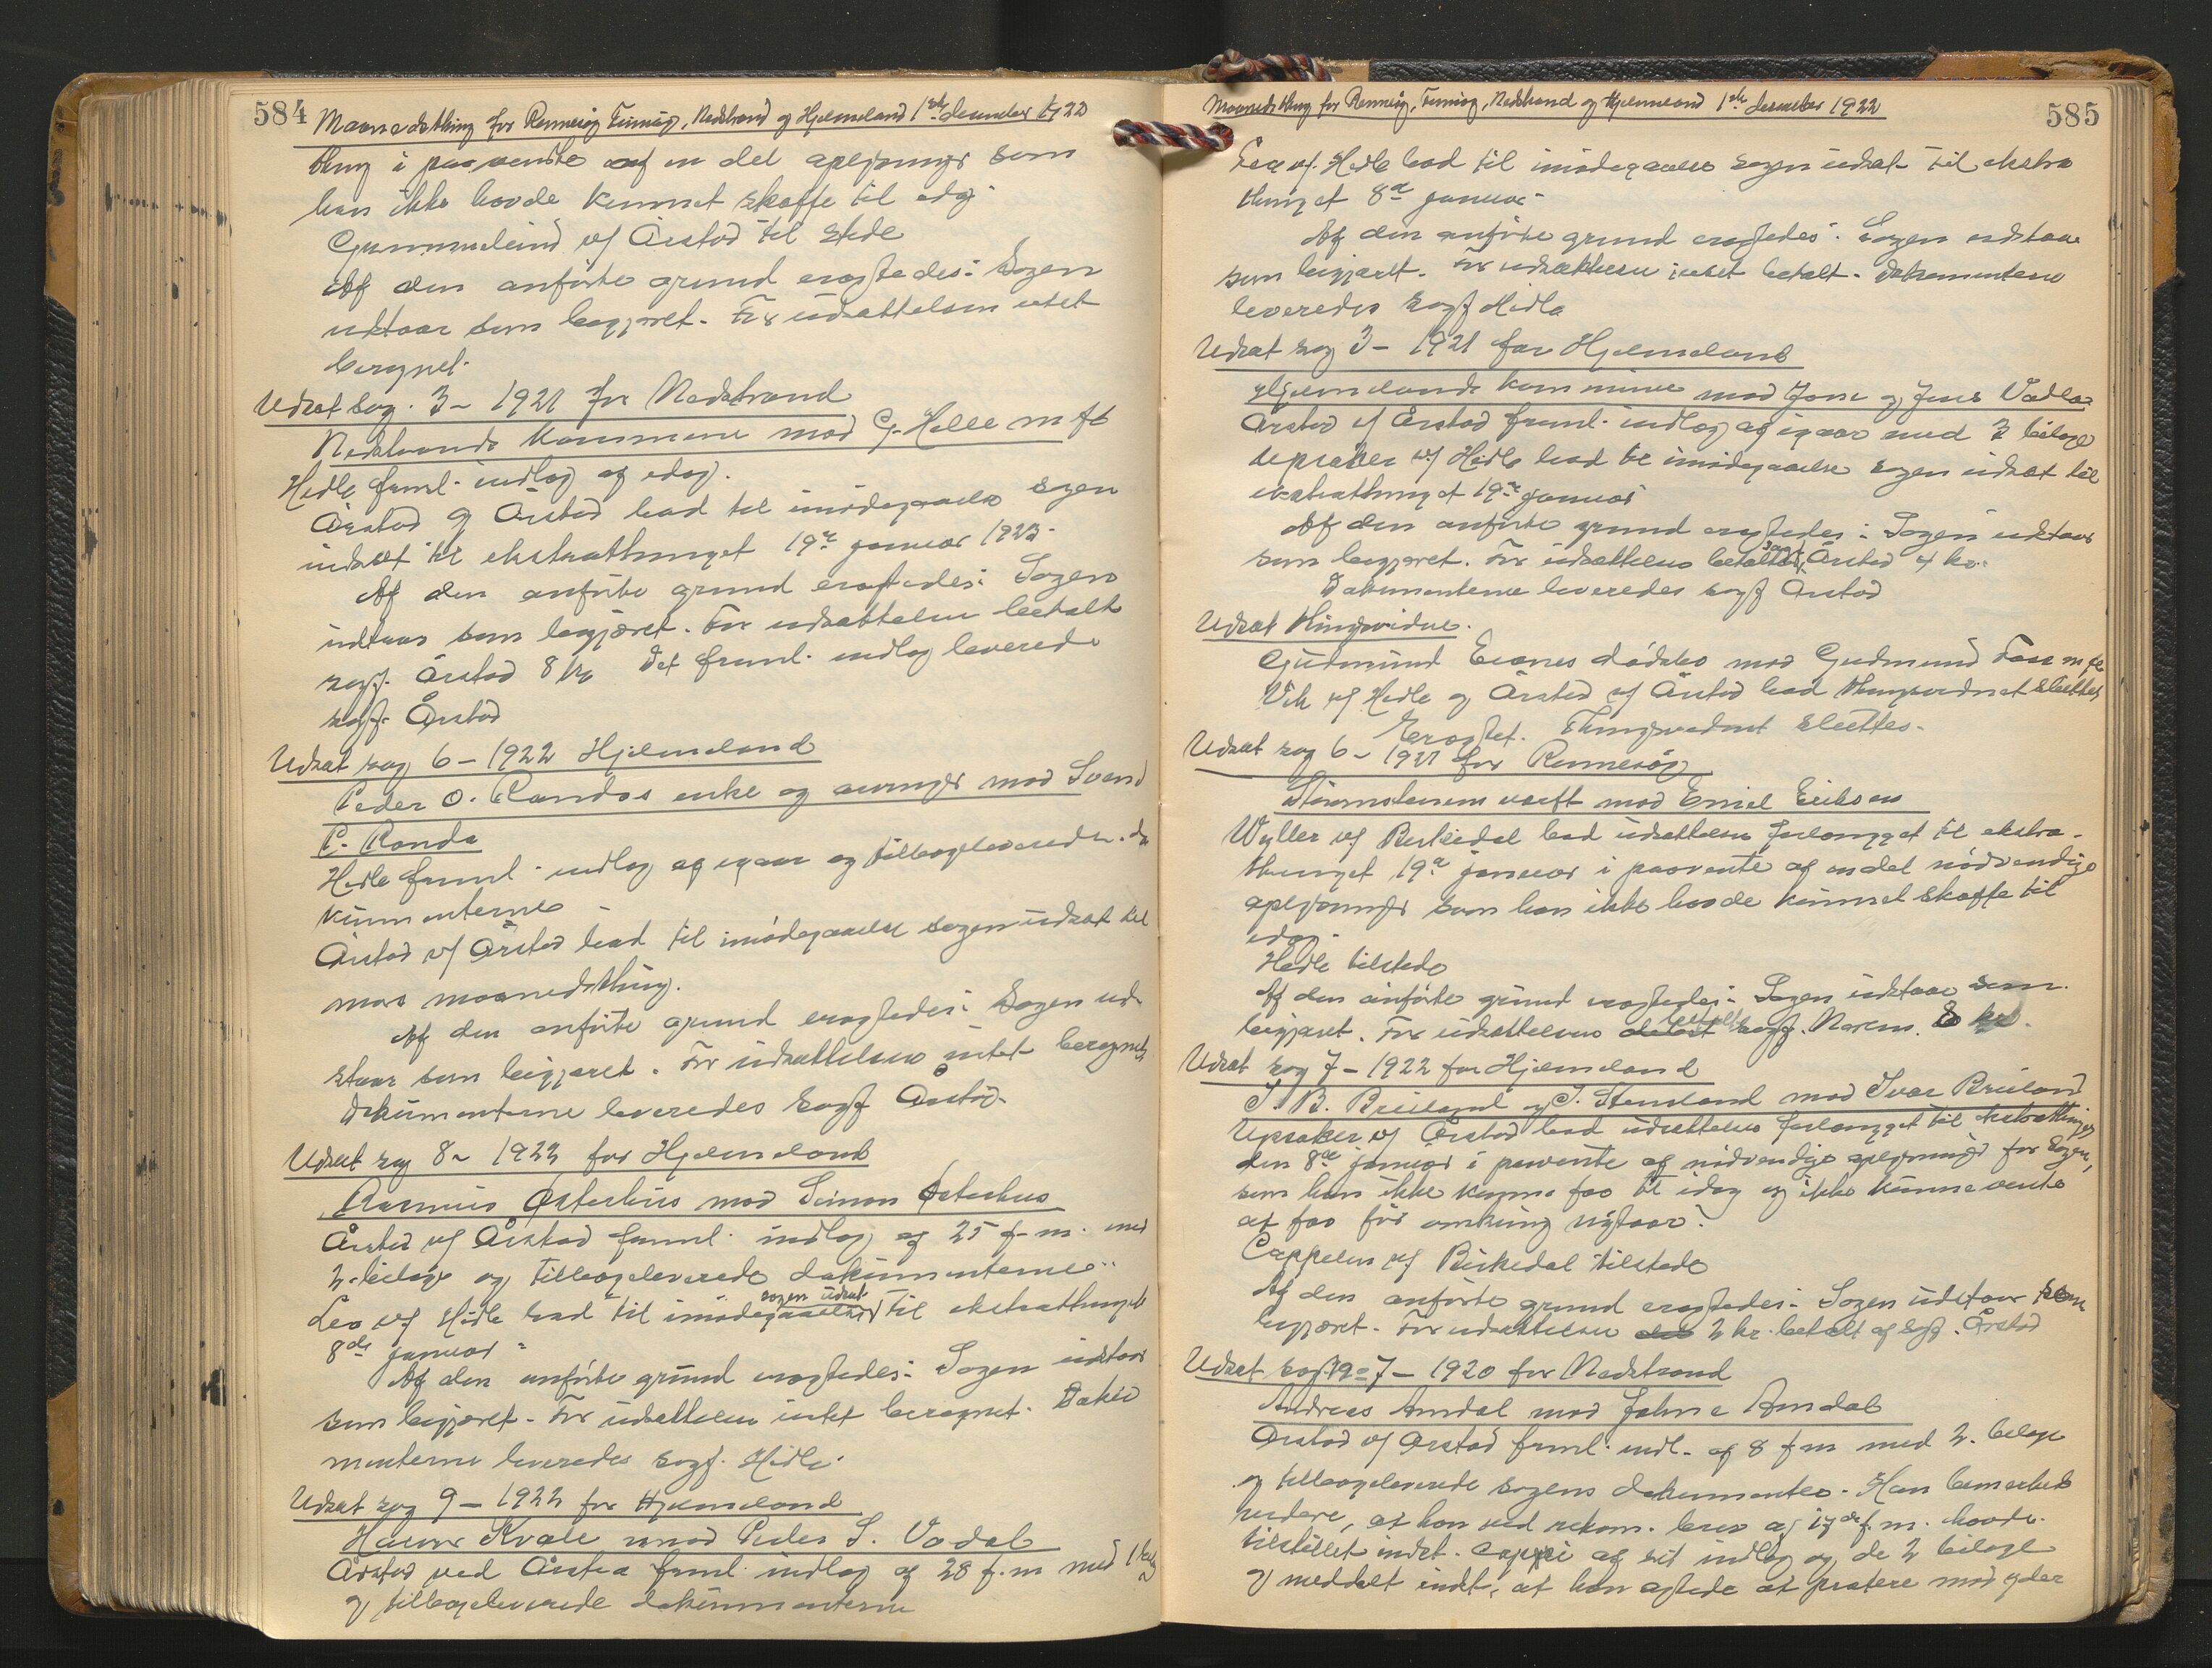 584
Maanedsthing for Rennesøy Finnøy, Nedstrand og Hjelmeland 1ste december 1922
thing i paavente af en del oplysninger som
han ikke havde kunnet skaffe til idag.
Gummeland v/ Årstad til stede
Af den anförte grund eragtedes: Sagen
udstaar som begjæret. For udsættelsen intet
beregnet.
Udsat sag. 3 – 1921 for Nedstrand
Nedstrands kommune mod G. Helle m fl
Hidle freml. indlæg af idag.
Årstad v/ Årstad bad til imödegaaelse sagen
udsat til ekstrathinget 19de januar 1923.
Af den anförte grund eragtedes: Sagen
udstaar som begjæret. For udsættelsen betalt
sagf. Årstad 8 kr Det freml. indlæg leveredes
sagf. Årstad
Udsat sag 6 – 1922 Hjelmeland
Peder O. Randas enke og arvinger mod Svend
P. Randa
Hidle freml. indlæg af igaar og tilbageleverede do
kumenterne
Årstad v/ Årstad bad til imödegaaelse sagen udsat til
mars maanedsthing.
Af den anförte grund eragtedes: Sagen ud
staar som begjæret. For udsættelsen intet beregnet
Dokumenterne leveredes sagf Årstad.
Udsat sag 8 – 1922 for Hjelmeland
Rasmus Østerhus mod Simon Østerhus
Årstad v/ Årstad freml. indlæg af 25 f. m. med
2 bilage og tilbageleverede dokumenterne
Lea v/ Hidle bad til imödegaaelse sagen udsat til ekstrathinget
8de januar
Af den anförte grund eragtedes: Sagen udstaar
som begjæret. For udsættelsen intet beregnet. Doku
menterne leveredes sagf. Hidle.
Udsat sag 9 – 1922 for Hjelmeland
Kvale mod Peder S. Vadal
Årstad ved Årstad freml. indlæg af 28 f. m med 1 bilag
og tilbageleverede dokumenterne
585
Maanedsthing for Rennesøy, Finnøy, Nedstrand og Hjelmeland 1ste december 1922
Lea v/ Hidle bad til imödegaaelse sagen udsat til ekstra
thinget 8de januar
Af den anförte grund eragtedes: Sagen udstaar
som begjæret. For udsættelsen intet betalt. Dokumenterne
leveredes sagf Hidle
Udsat sag 3 – 1921 for Hjelmeland
Hjelmelands kommune mod Jone og Jens Vadla
Årstad v/ Årstad freml. indlæg af igaar med 3 bilage
v/ Hidle bad til imödegaaelse sagen udsat til
ekstrathinget 19de januar
Af den anförte grund eragtedes: Sagen udstaar
som begjæret. For udsættelsen betalte sagf. Årstad 4 kr.
Dokumenterne leveredes sagf Årstad
Udsat thingsvidne.
Gudmund dödsbo mod Gudmund m fl
Vik v/ Hidle og Årstad v/ Årstad bad thingsvidnet sluttet
Eragtet. Thingsvidnet sluttes.
Udsat sag 6 – 1921 for Rennesøy
værft mod Emil Eriksen
Wyller v/ Birkedal bad udsættelsen forlænget til ekstra-
thinget 19de januar i paavente af en del nödvendige
oplysninger som han ikke havde kunnet skaffe til
idag.
Hidle tilstede
Af den anförte grund eragtedes: Sagen udstaar som
begjæret. For udsættelsen betalt sagf. 8 kr.
Udsat sag 7 – 1922 for Hjelmeland
T. B. Breiland og T. Steinsland mod Ivar Breiland
v/ Årstad bad udsættelsen forlænget til ekstrathinget
den 8de januar i paavente af nödvendige oplysninger for sagen,
som han ikke kunne faa til idag og ikke kunne vente
at faa för omkring nytaar.
Cappelen v/ Birkedal tilstede
Af den anförte grund eragtedes: Sagen udstaar som
begjæret. For udsættelsen 2 kr. betalt af sagf. Årstad
Udsat sag 7 – 1920 for Nedstrand
Andreas Amdal mod Johna Amdal
Årstad v/ Årstad freml. indl. af 8 f m med 2 bilage
og tilbageleverede sagens dokumenter. Han bemærkede
videre, at han ved rekom. brev af 17de f. m. havde
tilstillet indst. kopi af sit indlæg og de 2 bilage
og meddelt indst., at han agtede at protere mod yder